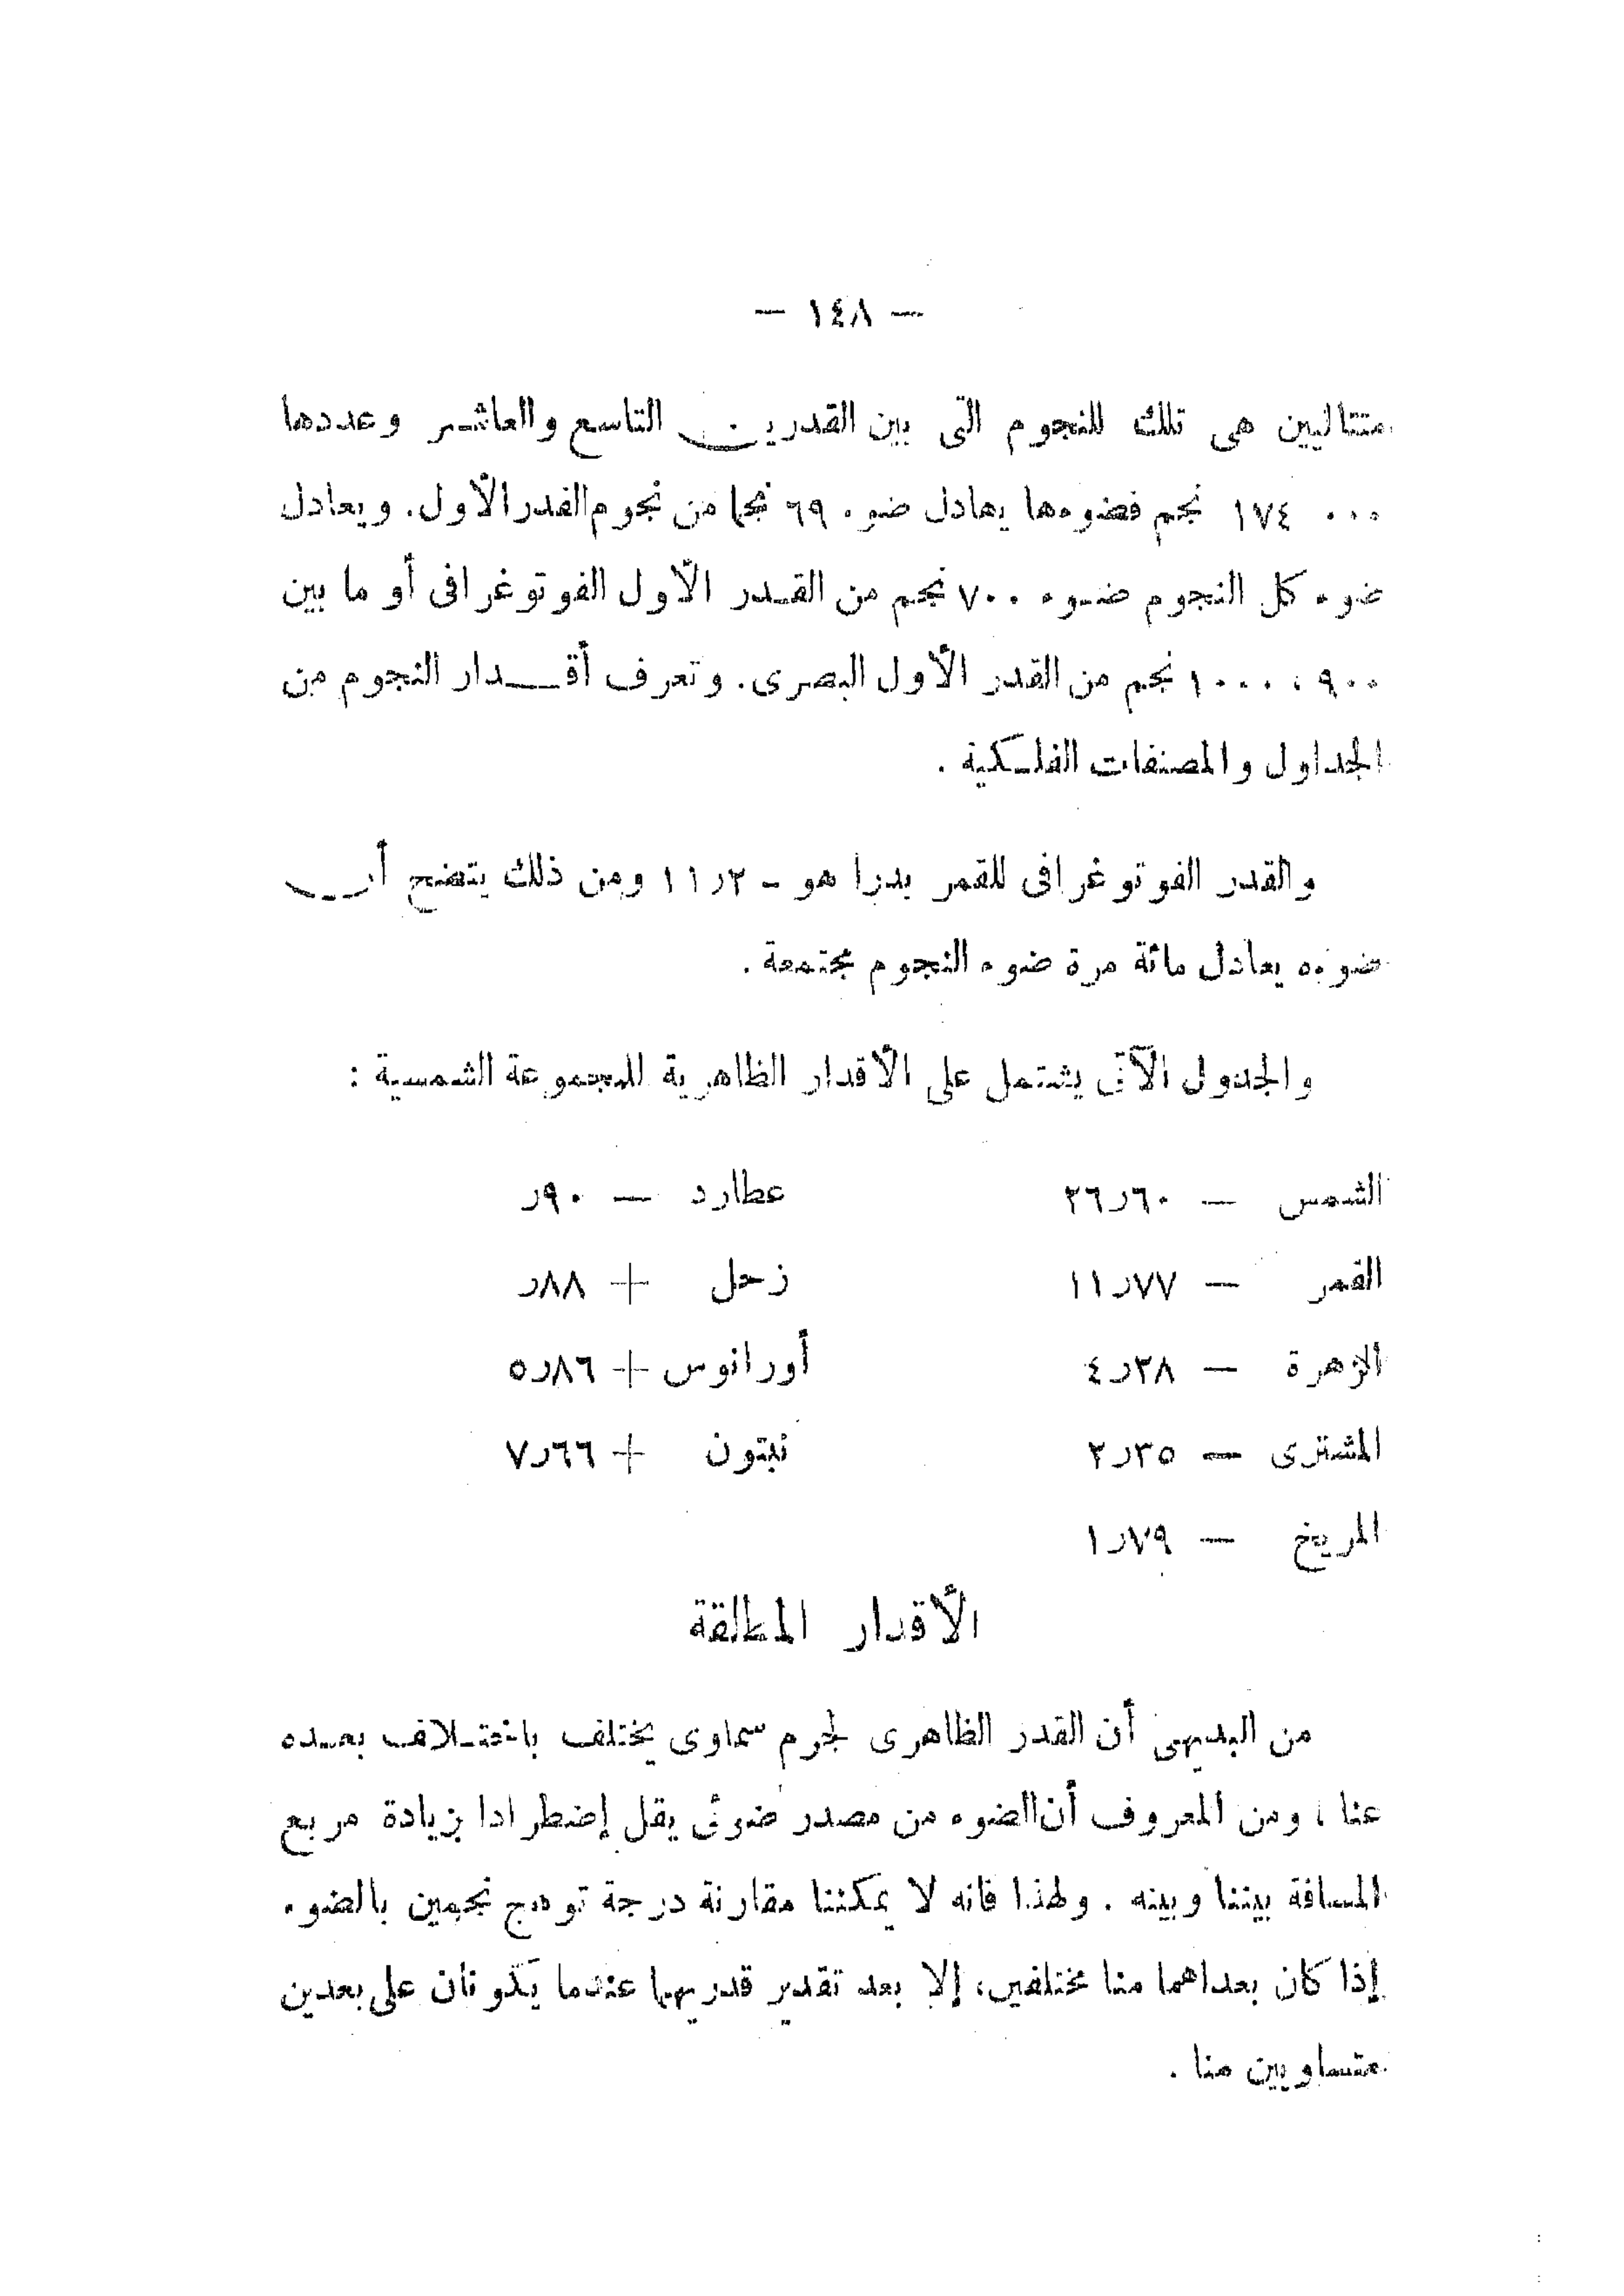 — ١٤٨ —
متتاليين هى تلك للنجوم التى بين القدرين التاسع والعاشر وعددها
١٧٤٠٠٠ نجم فضوءها يعادل ضوء ٦٩ نجما من نجوم القدر الأول. ويعادل
ضوء كل النجوم ضوء ٧٠٠ نجم من القدر الأول الفوتوغرافى أو ما بين
٩٠٠ ، ١٠٠٠ نجم من القدر الأول البصرى. وتعرف أقدار النجوم من
الجداول والمصنفات الفلكية .
والقدر الفوتوغرافى للقمر بدرا هو - ١١ر٢ ومن ذلك يتضح أن
ضوءه يعادل مائة مرة ضوء النجوم مجتمعة .
والجدول الآتى يشتمل على الأقدار الظاهرية للمجموعة الشمسية :
الشمس — ٢٦ر٦٠ عطارد — ر٩٠
القمر — ١١ر٧٧ زحل + ر٨٨
الزهرة — ٤ر٣٨ أورانوس + ٥ر٨٦
المشترى — ٢ر٣٥ نبتون + ٧ر٦٦
المريخ — ١ر٧٩
الأقدار المطلقة
من البديهى أن القدر الظاهرى لجرم سماوى يختلف باختلاف بعده
عنا ، ومن المعروف أن الضوء من مصدر ضوئى يقل إضطرادا بزيادة مربع
المسافة بيننا وبينه . ولهذا فانه لا يمكننا مقارنة درجة توهج نجمين بالضوء
إذا كان بعداهما منا مختلفين، إلا بعد تقدير قدريهما عندما يكونان على بعدين
متساويين منا .